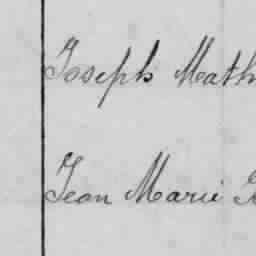 Joseph Math
Jean Marie